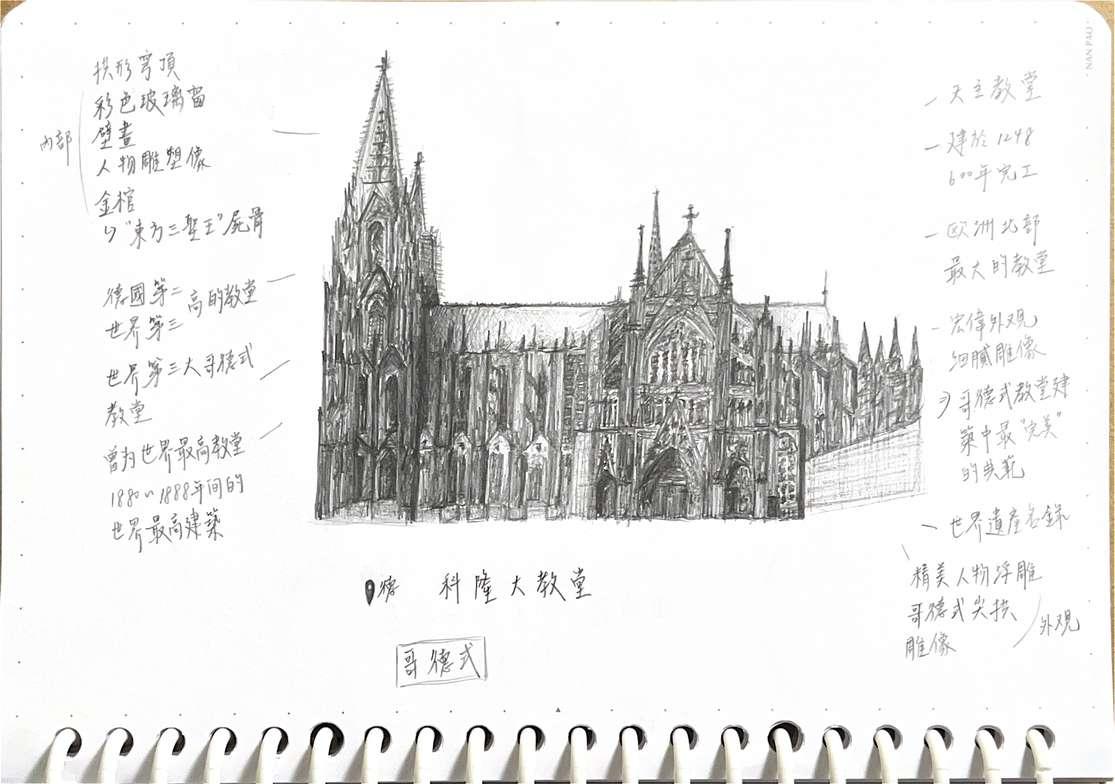 拱形穹頂
彩色玻璃窗
壁畫
人物雕塑像
金棺
↳"東方三聖王"屍骨
內部
德國第二
世界第三
高的教堂
世界第三大哥德式
教堂
曾為世界最高教堂
1880~1888年间的
世界最高建築
德 科隆大教堂
哥德式
- 天主教堂
- 建於1248
600年完工
- 欧洲北部
最大的教堂
- 宏偉外觀
细膩雕像
哥德式教堂建
築中最"完美"
的典範
- 世界遺產名錄
精美人物浮雕
哥德式尖拱
雕像
外观
NAN PAO